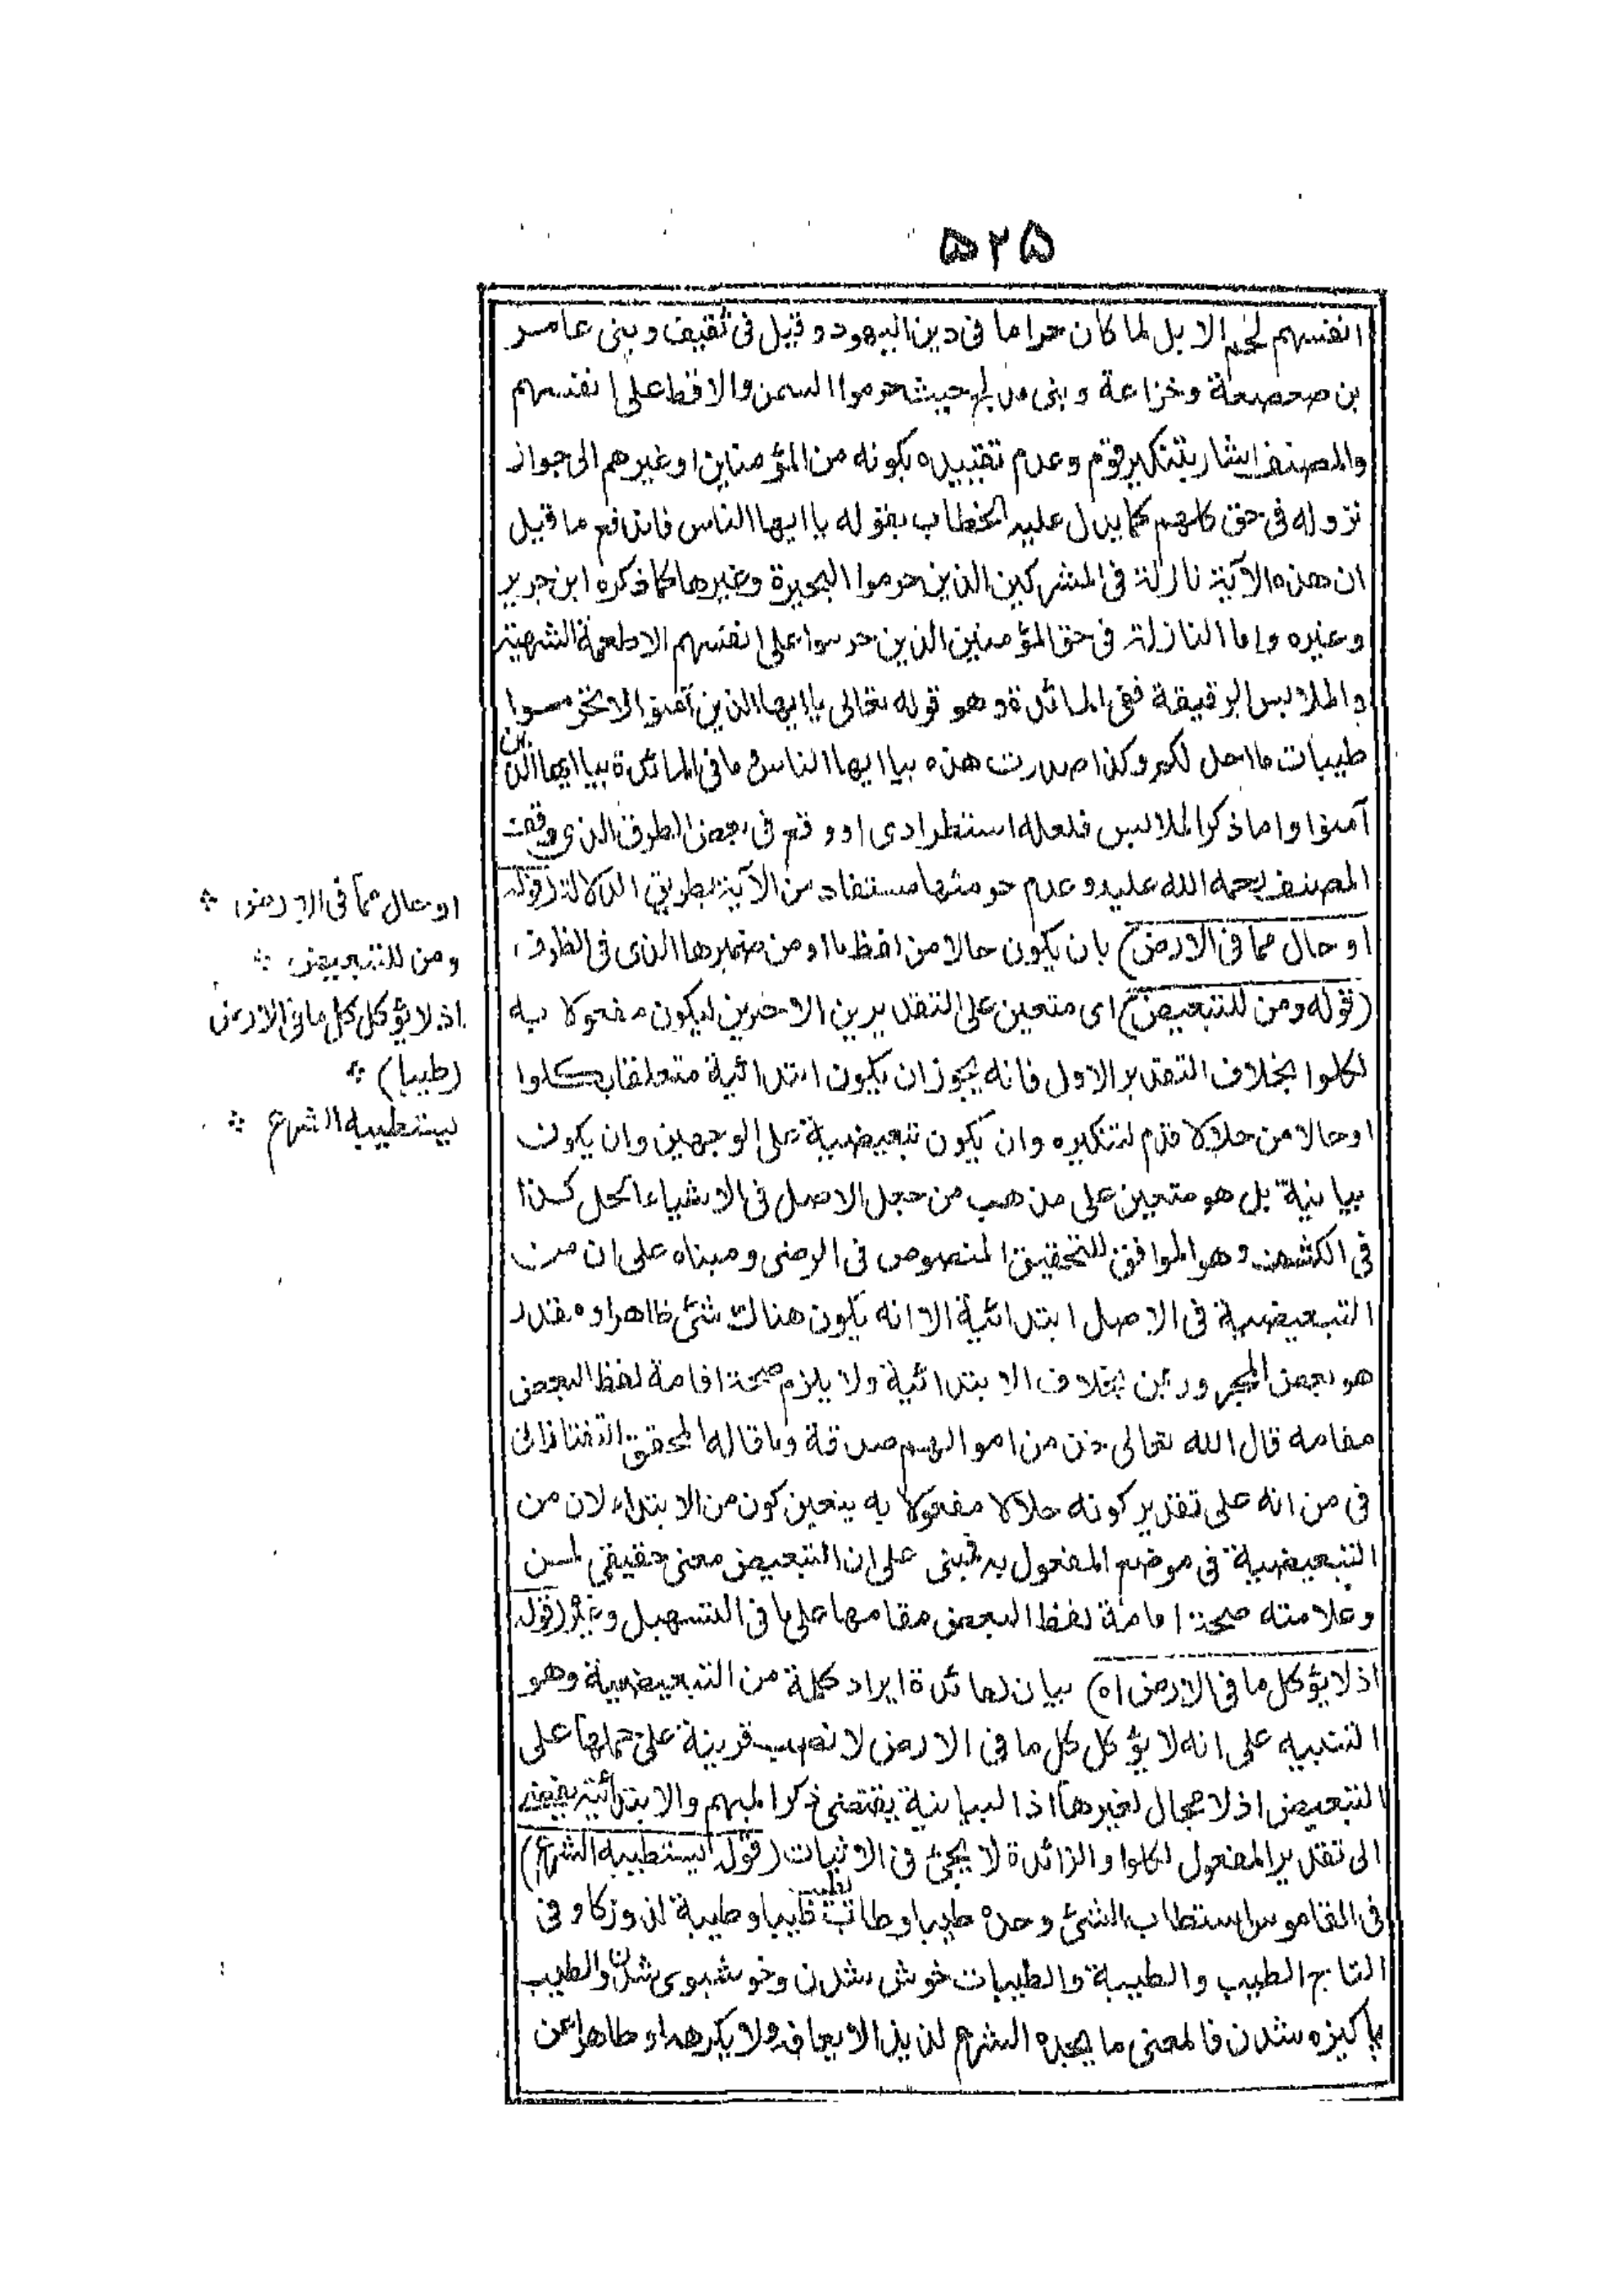 ۵۲۵
انفسهم لحم الابل لما كان حراما فى دين اليهود وقيل فى ثقيف وبنى عامر
بن صعصعة وخزاعة وبنى مدلج حيث حرموا السمن والاقط على انفسهم
والمصنف اشار بتنكير قوم وعدم تقييده بكونه من المؤمنين او غيرهم الى جواز
نزوله فى حق كلهم كما يدل عليه الخطاب بقوله يا ايها الناس فاندفع ما قيل
ان هذه الآية نازلة فى المشركين الذين حرموا البحيرة وغيرها كما ذكره ابن جرير
وغيره واما النازلة فى حق المؤمنين الذين حرموا على انفسهم الاطعمة الشهية
والملابس الرقيقة ففى المائدة وهو قوله تعالى يا ايها الذين آمنوا لا تحرموا
طيبات ما احل لكم وكذا صدرت هذه بيا ايها الناس وما فى المائدة بيا ايها الذين
آمنوا واما ذكر الملابس فلعله استطرادى او وقع فى بعض الطرق الذى وقف
المصنف رحمه الله عليه وعدم حرمتها مستفاد من الآية بطريق الدلالة (قوله
او حال مما فى الارض) بان يكون حالا من لفظ ما او من ضميرها الذى فى الظرف
(قوله ومن للتبعيض) اى متعين على التقديرين الاخيرين ليكون مفعولا به
لكلوا بخلاف التقدير الاول فانه يجوز ان يكون ابتدائية متعلقا بكلوا
او حالا من حلالا قدم لتنكيره وان يكون تبعيضية على الوجهين وان يكون
بيانية بل هو متعين على مذهب من جعل الاصل فى الاشياء الحل كذا
فى الكشف وهو الموافق للتحقيق المنصوص فى الرضى ومبناه على ان من
التبعيضية فى الاصل ابتدائية الا انه يكون هناك شئ ظاهر او مقدر
هو بعض المجرور بمن بخلاف الابتدائية ولا يلزم صحة اقامة لفظ البعض
مقامه قال الله تعالى خذ من اموالهم صدقة وما قاله المحقق التفتازانى
فى من انه على تقدير كونه حلالا مفعولا به يتعين كون من الابتداء لان من
التبعيضية فى موضع المفعول به مبنى على ان التبعيض معنى حقيقى لمن
وعلامته صحة اقامة لفظ البعض مقامها على ما فى التسهيل وغيره (قوله
اذ لا يؤكل ما فى الارض اه) بيان لفائدة ايراد كلمة من التبعيضية وهو
التنبيه على انه لا يؤكل كل ما فى الارض لا نصب قرينة على حملها على
التبعيض اذ لا مجال لغيرها اذ البيانية يقتضى ذكر المبهم والابتدائية يفضى
الى تقدير المفعول لكلوا والزائدة لا يجئ فى الاثبات (قوله يستطيبه الشرع)
فى القاموس استطاب الشئ وجده طيبا وطاب يطيب طيبا وطيبة لذ وزكا وفى
التاج الطيب والطيبة والطيبات خوش شدن وخوشبوى شدن والطيب
پاكيزه شدن فالمعنى ما يجده الشرع لذيذا لا يعافه ولا يكرهه او طاهرا عن
او حال مما فى الارض
ومن للتبعيض
اذ لا يؤكل كل ما فى الارض
(طيبا)
يستطيبه الشرع